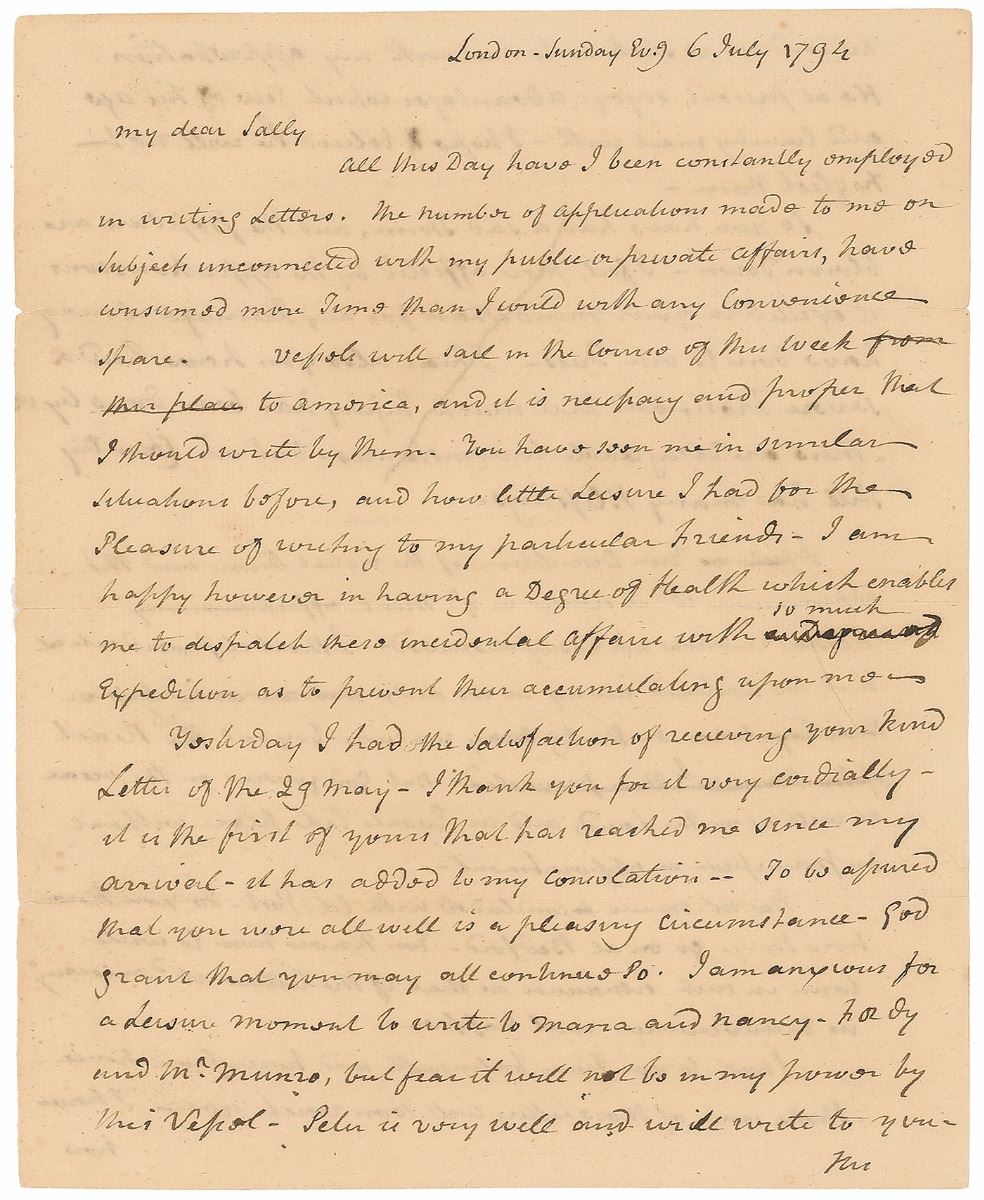 London - Sunday Evg 6 July 1794
my dear Sally
all this Day have I been constantly employed
in writing Letters. The number of applications made to me on
Subjects unconnected with my public or private affairs, have
consumed more Time than I could with any Convenience
spare. Vessels will sail in the Course of this week from
this place to america, and it is necessary and proper that
I should write by them. You have seen me in similar
situations before, and how little Leisure I had for the
Pleasure of writing to my particular Friends - I am
happy however in having a Degree of Health which enables
so much
me to dispatch these incidental affairs with
Expedition as to prevent their accumulating upon me -
Yesterday I had the Satisfaction of recieving your kind
Letter of the 29 May - I thank you for it very cordially -
it is the first of yours that has reached me since my
arrival - it has added to my Consolation -- To be assured
that you were all well is a pleasing Circumstance - God
grant that you may all continue so. I am anxious for
a Leisure moment to write to Maria and Nancy - to Dy
and Mr. Munro, but fear it will not be in my power by
this Vessel - Peter is very well and will write to you -
His